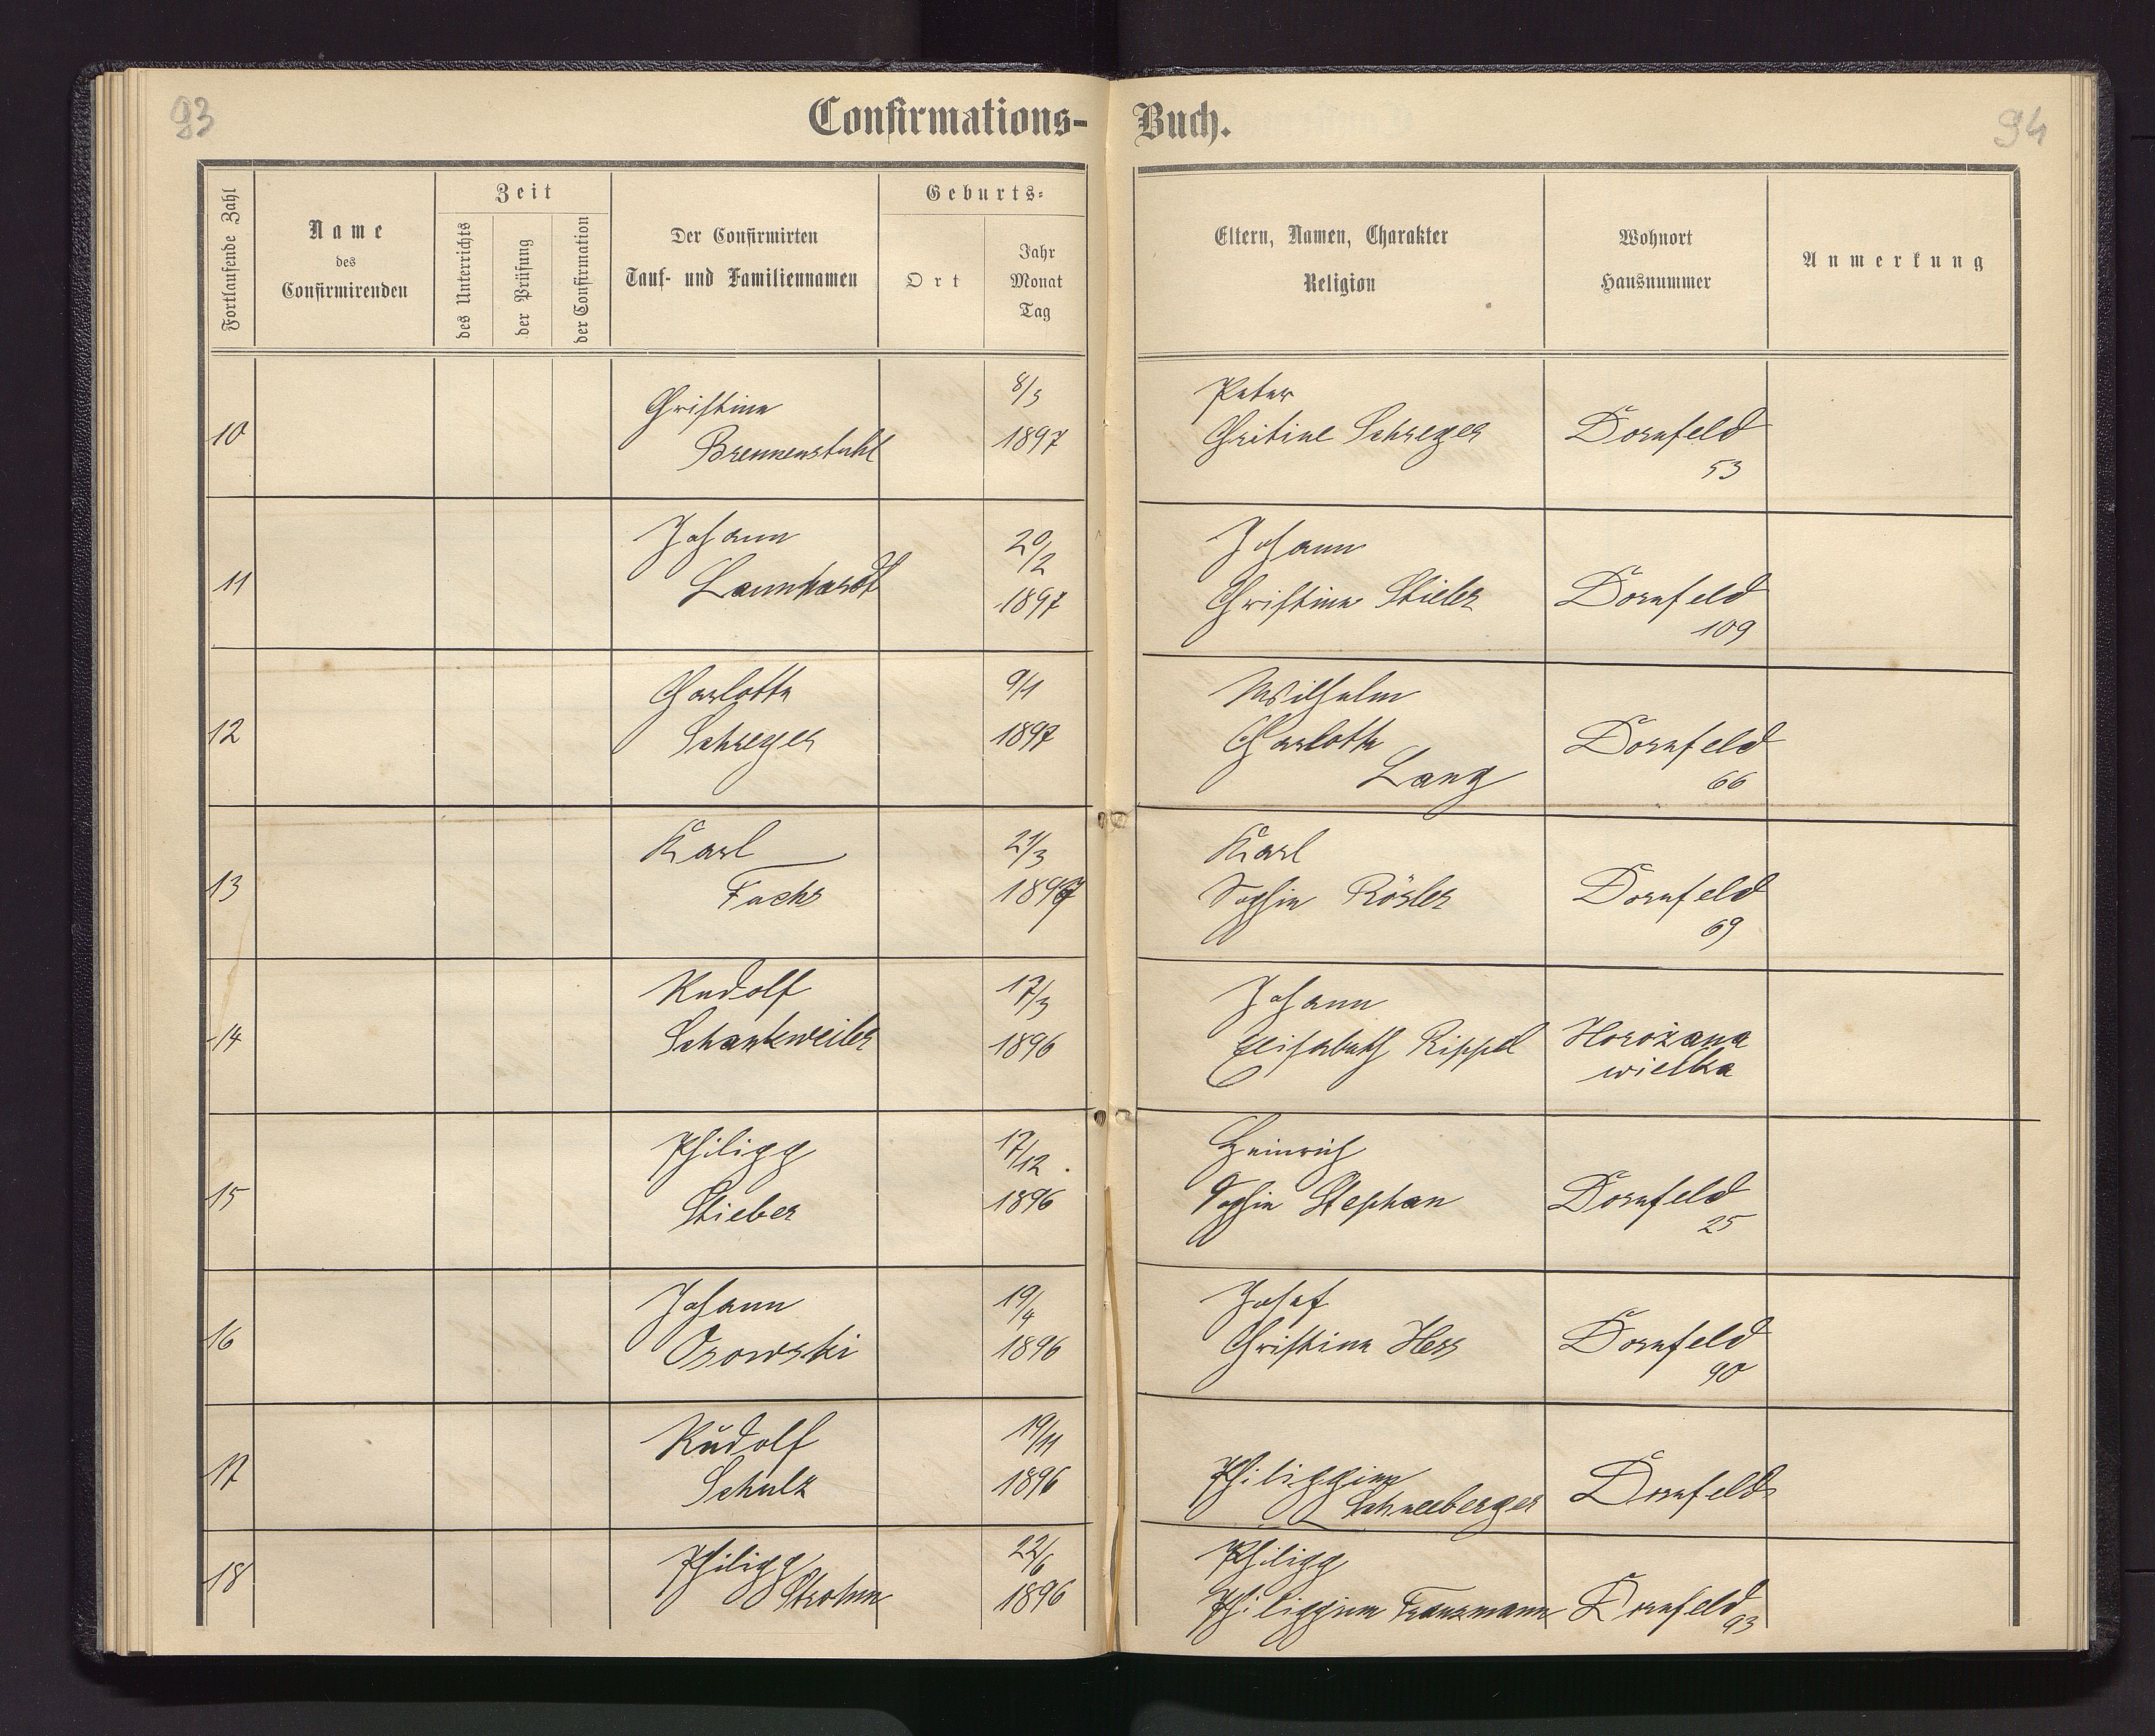 93
94
Confirmations-Buch.
Fortlaufende Zahl
Name
des
Confirmirenden
Zeit
des Unterrichts
der Prüfung
der Confirmation
Der Confirmirten
Tauf- und Familiennamen
Geburts-
Ort
Jahr
Monat
Tag
Eltern, Namen, Charakter
Religion
Wohnort
Hausnummer
Anmerkung
10
Christine
Brennenstuhl
8/3
1897
Peter
Chritine Schreyer
Dornfeld
53
11
Johann
Lannhardt
20/2
1897
Johann
Christine Stieler
Dornfeld
109
12
Charlotte
Schreyer
9/1
1897
Wilhelm
Charlotte
Lang
Dornfeld
66
13
Karl
Fuchs
21/3
1897
Karl
Sophie Rösler
Dornfeld
69
14
Rudolf
Schankweiler
17/3
1896
Johann
Elisabeth Rippel
Horożana
wielka
15
Philipp
Stieber
17/12
1896
Heinrich
Sophie Stephan
Dornfeld
25
16
Johann
Osowski
19/4
1896
Josef
Christine Hess
Dornfeld
90
17
Rudolf
Schulz
19/11
1896
Philippine
Schneeberger
Dornfeld
18
Philipp
Strohm
22/6
1896
Philipp
Philippine Franzmann
Dornfeld
93